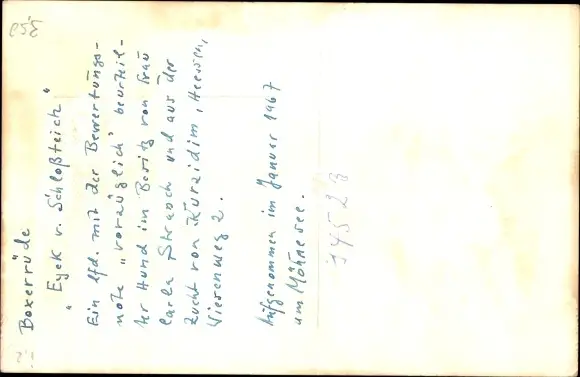 Boxerrüde
"Eyck v. Schloßteich"
Ein lfd. mit der Bewertungs-
note "vorzüglich" beurteil-
ter Hund im Besitz von Frau
Carla Strauch und aus der
Zucht von Kurzidim, Heessen,
Wiesenweg 2.
Aufgenommen im Januar 1967
am Möhnesee.